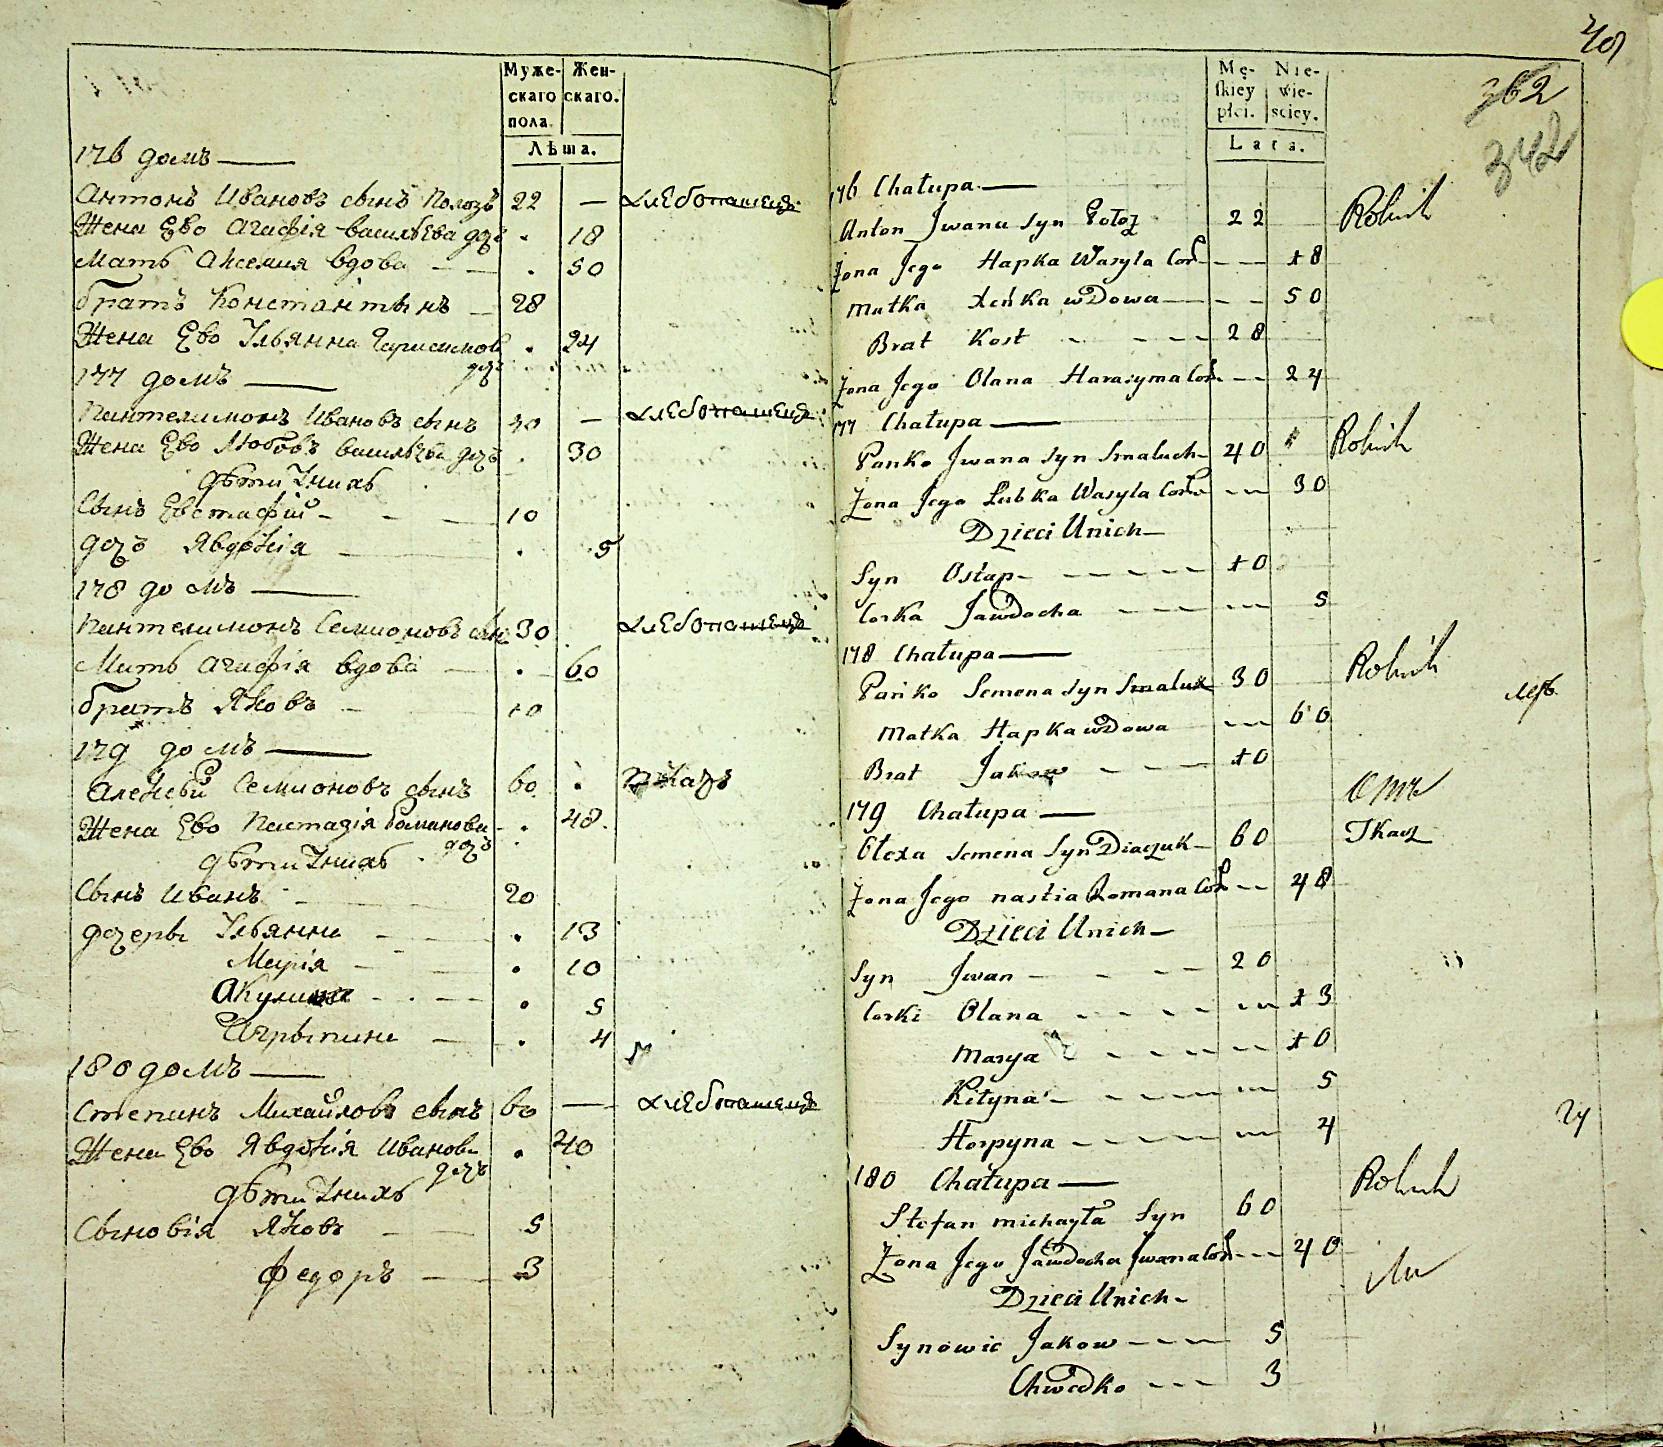 Муже- Жен-
скаго скаго.
пола.
Лѣта.
176 домъ
Антонъ Ивановъ сынъ Полозъ 22 — хлебопашецъ
Жена Ево Агафія Васильева дочь . 18
Мать Аксения вдова — . 50
братъ Константынъ — 28
Жена Ево Ульянна Гарисимова . 24
дочь
177 домъ
Пантелимонъ Ивановъ сынъ 40 — хлебопашецъ
Жена Ево Любовъ васильева дочъ . 30
дѣти Унихъ
Сынъ Евстафій — 10
дочъ Явдокія — . 5
178 домъ
Пантелимонъ Семионовъ сынъ 30 хлебопашецъ
Мать Агафія вдова — . 60
братъ Яковъ — 10
179 домъ
Алексѣй Семионовъ сынъ 60 . ткачъ
Жена Ево Настазія Романова . 48
дочъ
дѣти Унихъ
Сынъ Иванъ 20
дочеры Ульянна — . 13
Марія — . 10
Акулина — . 5
Агрыпина — . 4
180 домъ
Степанъ Михайловъ сынъ 60 — хлебопашецъ
Жена Ево Явдокія Иванова . 40
дочъ
дѣти Унихъ
Сыновія Яковъ — 5
Федоръ — 3
40
Mę- Nie-
skiey wie-
płci. sciey.
Lata.
362
342
176 Chałupa Rolnik
Anton Jwana Syn Połoz 22
Zona Jego Hapka Wasyla Cor 18
Matka Xeńka wDowa 50
Brat Kost 28
Zona Jego Olana Harasyma Cor 24
177 Chałupa Rolnik
Panko Jwana Syn Smaluch 40
Zona Jego Lubka Wasyla Cor 30
Dzieci Unich
Syn Ostap 10
Corka JawDocha 5
178 Chałupa Rolnik
Pańko Semena Syn Smaluk 30
Matka Hapka wDowa 60
Brat Jakow 10
179 Chałupa
Ołexa Semena Syn Diaczuk 60 Tkacz
Zona Jego nastia Romana Cor 48
Dzieci Unich
Syn Jwan 20
Corki Olana 13
Marya 10
Kiłyna 5
Horpyna 4
24
180 Chałupa Rolnik
Stefan michayła Syn 60
Zona Jego JawDocha Jwana Cor 40
Dzieci Unich
Synowie Jakow 5
Chwedko 3